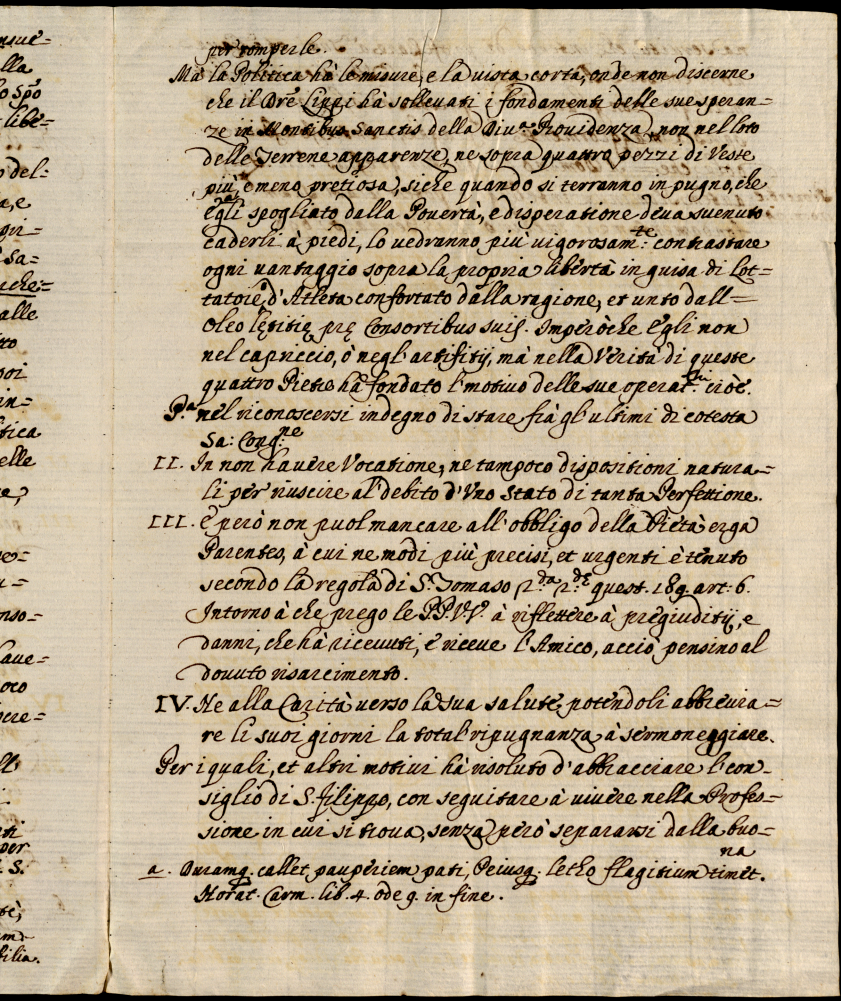 per romperle.
Ma la Politica hà le misure, e la vista corta, onde non discerne
che il Dre Lippi hà sollevati i fondamenti delle sue speran=
ze in Montibus Sanctis della Diua Providenza, non nel loto
delle Terrene apparenze, ne sopra quattro pezzi di Veste
più, e meno pretiosa, siche quando si terranno in pugno, che
egli a. spogliato dalla Povertà, e disperatione deva svenuto
caderli à piedi, lo vedranno più vigorosamte: contrastare
ogni vantaggio sopra la propria libertà in guisa di Lot=
tatore, d'Atleta confortato dalla ragione, et unto dall=
Oleo lętitię prę Consortibus suis. Imperòche Egli non
nel capriccio, ò negl' artifitij, mà nella Verità di queste
quattro Pietre hà fondato l'motivo delle sue operat.ni cioè.
P.a nel riconoscersi indegno di stare frà gl'ultimi di cotesta
Sa: Cong.ne
II. In non havere Vocatione, ne tampoco dispositioni natura=
li per riuscire al' debito d'Uno Stato di tanta Perfettione.
III. E però non puol mancare all'obbligo della Pietà erga
Parentes, à cui ne modi più precisi, et urgenti è tenuto
secondo la regola di S. Tomaso 2.da 2.dę quest. 189. art: 6.
Intorno à che prego le PP. VV. à riflettere à pregiuditij, e
danni, che hà ricevuti, e riceve l'Amico, acciò pensino al
dovuto risarcimento.
IV. Ne alla Carità verso la sua salute, potendoli abbrevia=
re li suoi giorni la total' ripugnanza à sermoneggiare.
Per i quali, et altri motivi hà risoluto d'abbracciare l'con=
siglio di S. Filippo, con seguitare à vivere nella Profes=
sione in cui si trova, senza però separarsi dalla buo=
na
a. Duramq. callet pauperiem pati, Peiusq. letho flagitium timet.
Horat. Carm. lib. 4. ode 9. in fine.